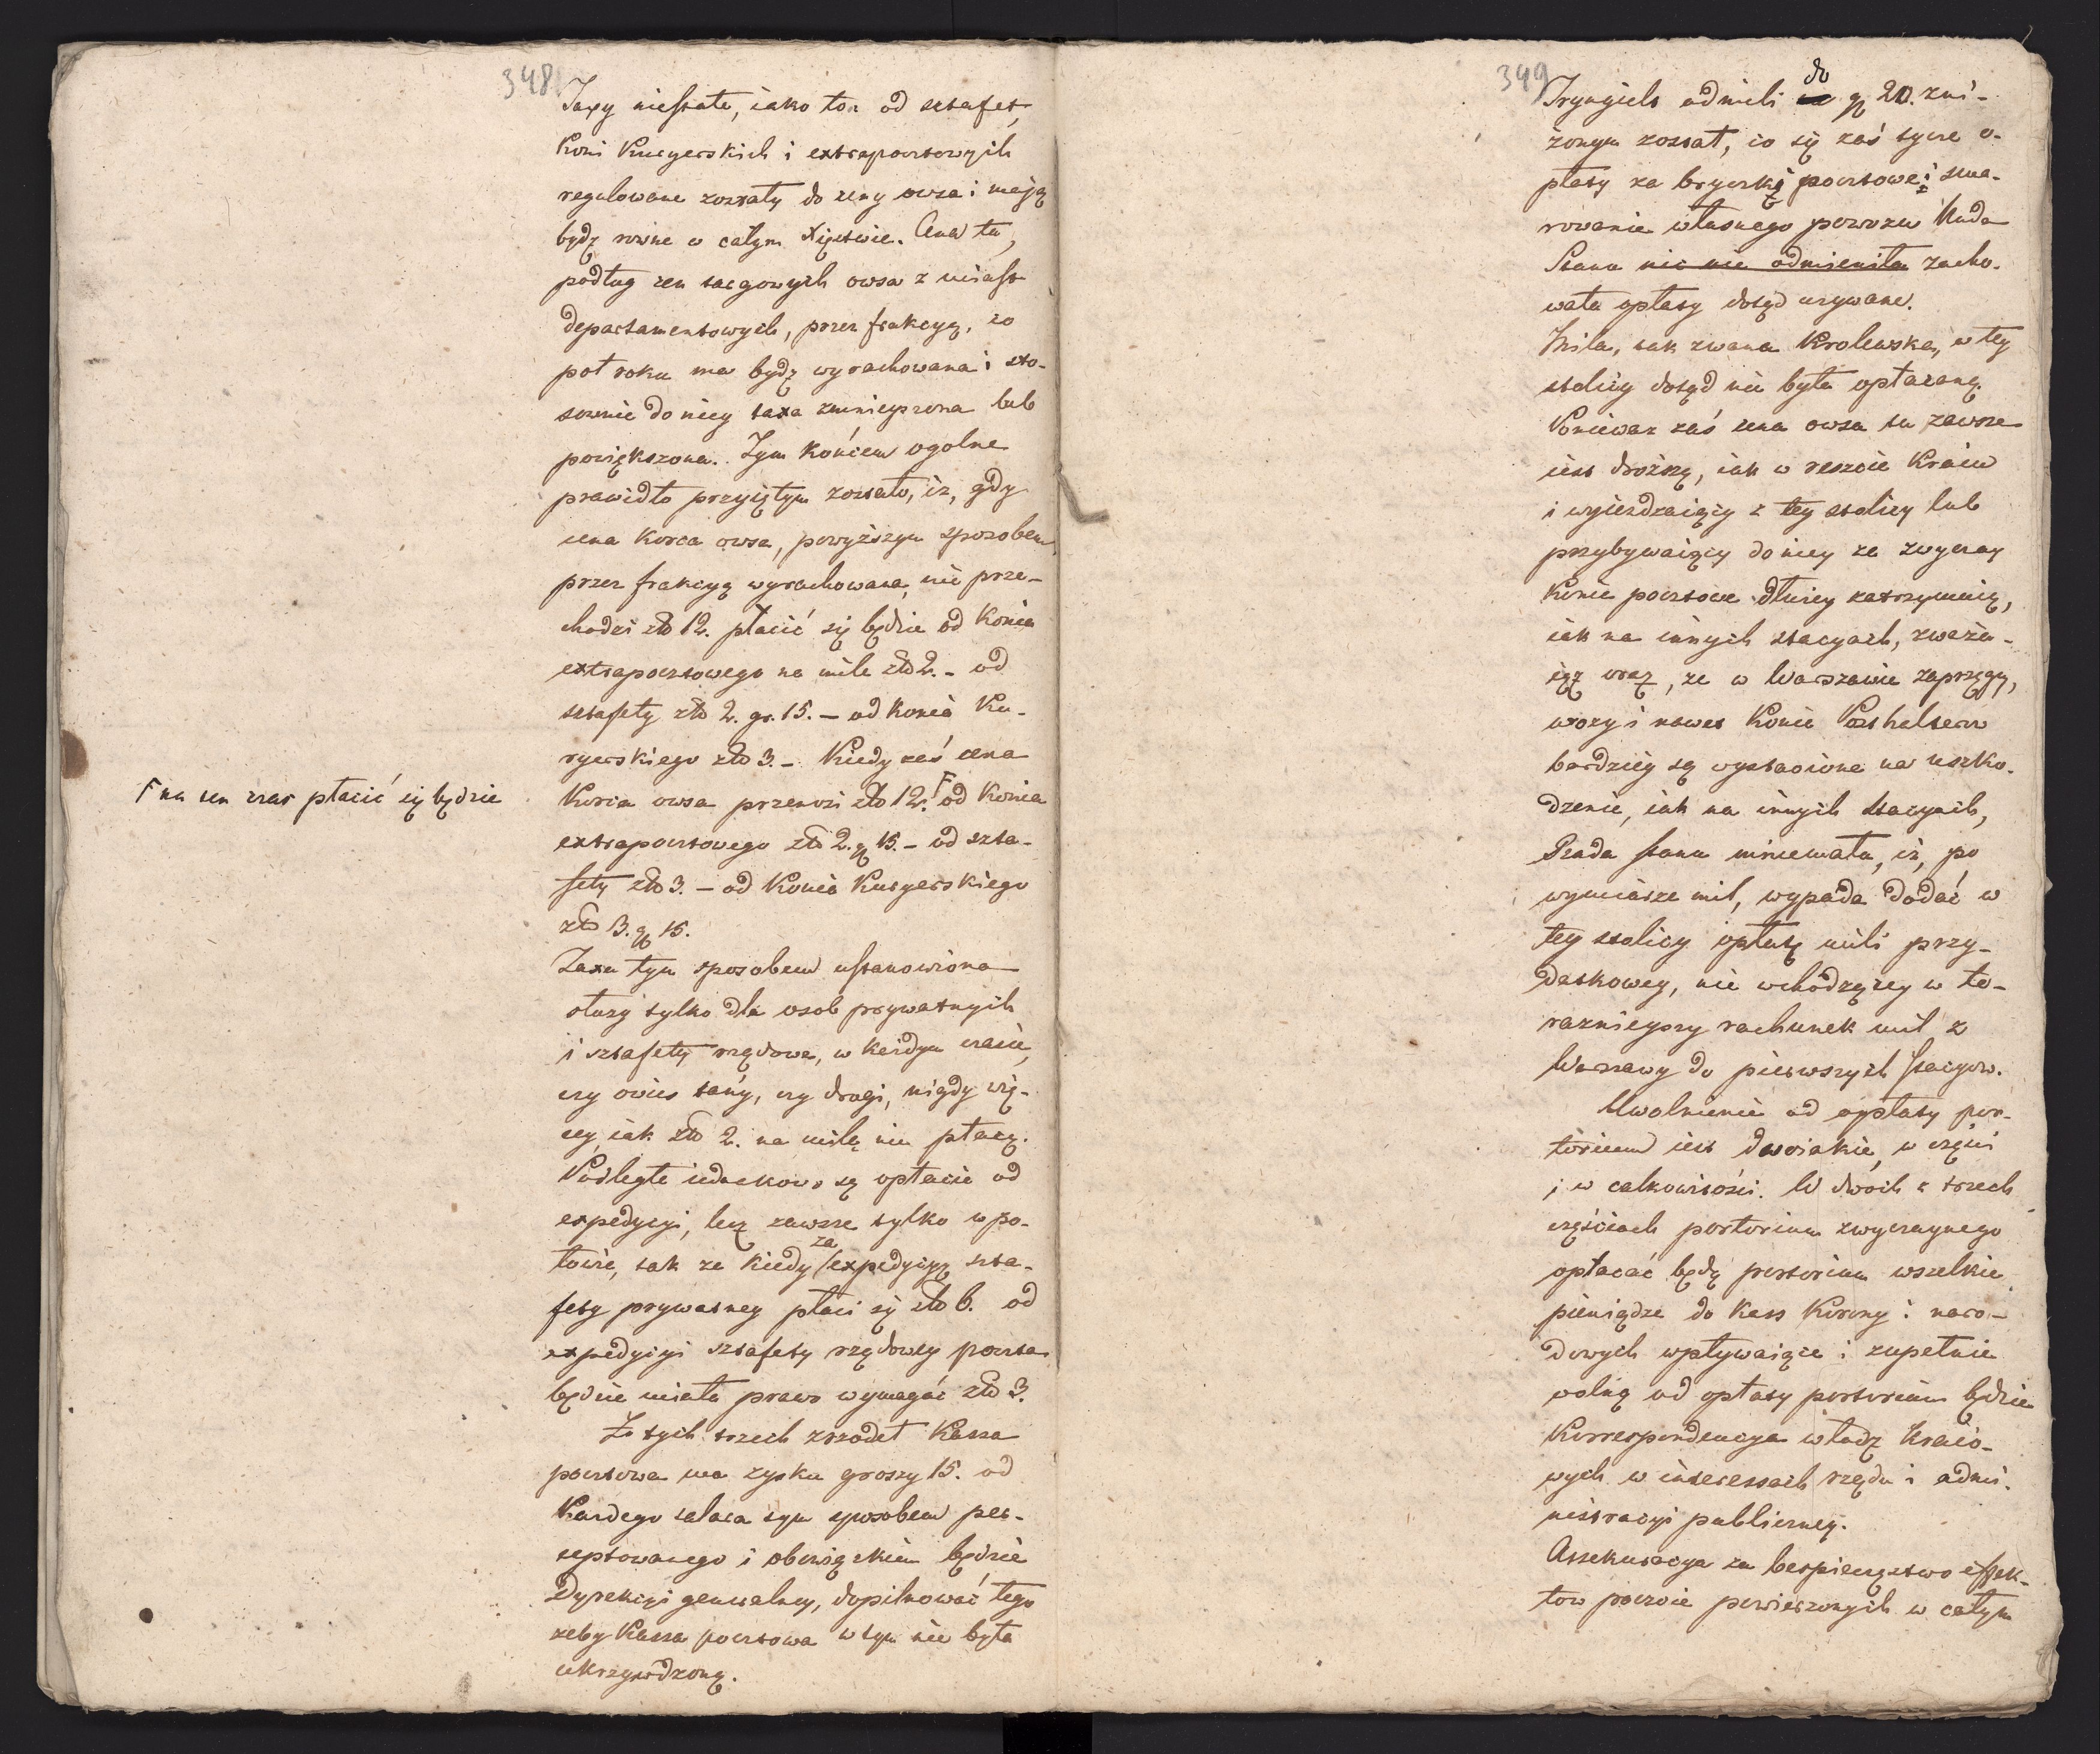 348
Taxy niestałe, iako to: od sztafet,
Koni Kuryerskich i extrapocztowych
regulowane zostały do ceny owsa i mają
bydź rowne w całym Xięstwie. Cena ta,
podług cen targowych owsa z miast
departamentowych, przez frakcyą, co
poł roku ma bydź wyrachowana i sto-
sownie do niey taxa zmnieyszona lub
powiększona. Tym końcem ogolne
prawidło przyiętym zostało, iż, gdy
cena korca owsa, powyższym sposobem
przez frakcyą wyrachowana, nie prze-
chodzi zło 12. płacić się będzie od Konia
extrapocztowego na mile zło 2. - od
sztafety zło 2. gr. 15. - od Konia Ku-
ryerskiego zło 3. - Kiedy zaś cena
Korca owsa przenosi zło 12. F od Konia
F na ten czas płacić się będzie
extrapocztowego zło 2. gr 15. - od szta-
fety zło 3. - od Konia Kuryerskiego
zło 3. gr 15.
Taxa tym sposobem ustanowiona
służy tylko dla osob prywatnych
i sztafety rządowe, w każdym czasie,
czy owies tani, czy drogi, nigdy wię-
cey iak zło 2. na milę nie płacą.
Podległe iednakowo są opłacie od
expedycyi, lecz zawsze tylko w po-
łowie, tak że kiedy za expedycyą szta-
fety prywatney płaci się zło 6. od
expedycyi sztafety rządowey poczta
będzie miała prawo wymagać zło 3.
Z tych trzech zrzodeł Kassa
pocztowa ma zysku groszy 15. od
Każdego talara tym sposobem per-
ceptowanego i obowiązkiem będzie
Dyrekcyi generalney, dopilnować tego
żeby Kassa pocztowa w tym nie była
ukrzywdzoną.
349
Tryngielt od mili do gr 20. zni-
żonym został, co się zaś tycze o-
płaty za bryczkę pocztową i sma-
rowanie własnego powozu Rada
Stanu nic nie odmieniła zacho-
wała opłaty dotąd używane.
Mila, tak zwana Krolewska, w tey
stolicy dotąd nie była opłacaną.
Ponieważ zaś cena owsa tu zawsze
iest droższą, iak w reszcie Kraiu
i wyieżdzaiący z tey stolicy lub
przybywaiący do niey ze zwyczay
Konie pocztowe dłużey zatrzymuią,
iak na innych stacyach, zważa-
iąc oraz, że w Warszawie zaprzęgi,
wozy i nawet Konie Poszthalterow
bardziey są wystawione na uszko-
dzenie, iak na innych stacyach,
Rada stanu mniemała, iż, po
wymiarze mil, wypada dodać w
tey stolicy opłatę mili przy-
datkowey, nie wchodzącey w te-
raznieyszy rachunek mil z
Warszawy do pierwszych stacyow.
Uwolnienie od opłaty por-
torium iest dwoiakie, w części
i w całkowitości. W dwoch z trzech
częściach portorium zwyczaynego
opłacać będą portorium wszelkie
pieniądze do Kass Korony i naro-
dowych wpływaiące i zupełnie
wolną od opłaty portorium będzie
Korrespondencya władz Kraio-
wych w interessach rządu i admi-
nistracyi publiczney.
Assekuracya za bespieczeństwo effek-
tow poczcie powierzonych w całym